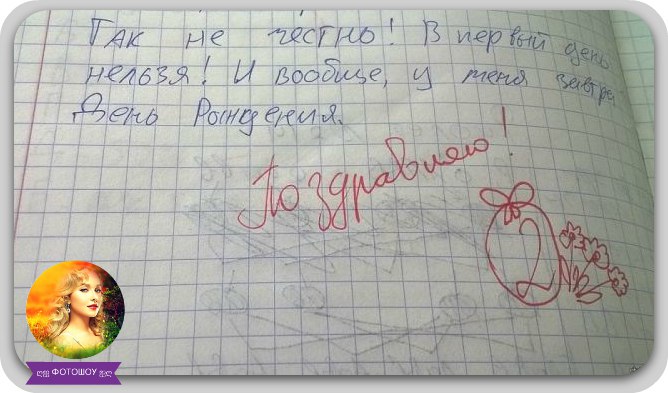 Так не честно! В первый день
нельзя! И вообще, у меня завтра
День Рождения.
Поздравляю!
2
ФОТОШОУ